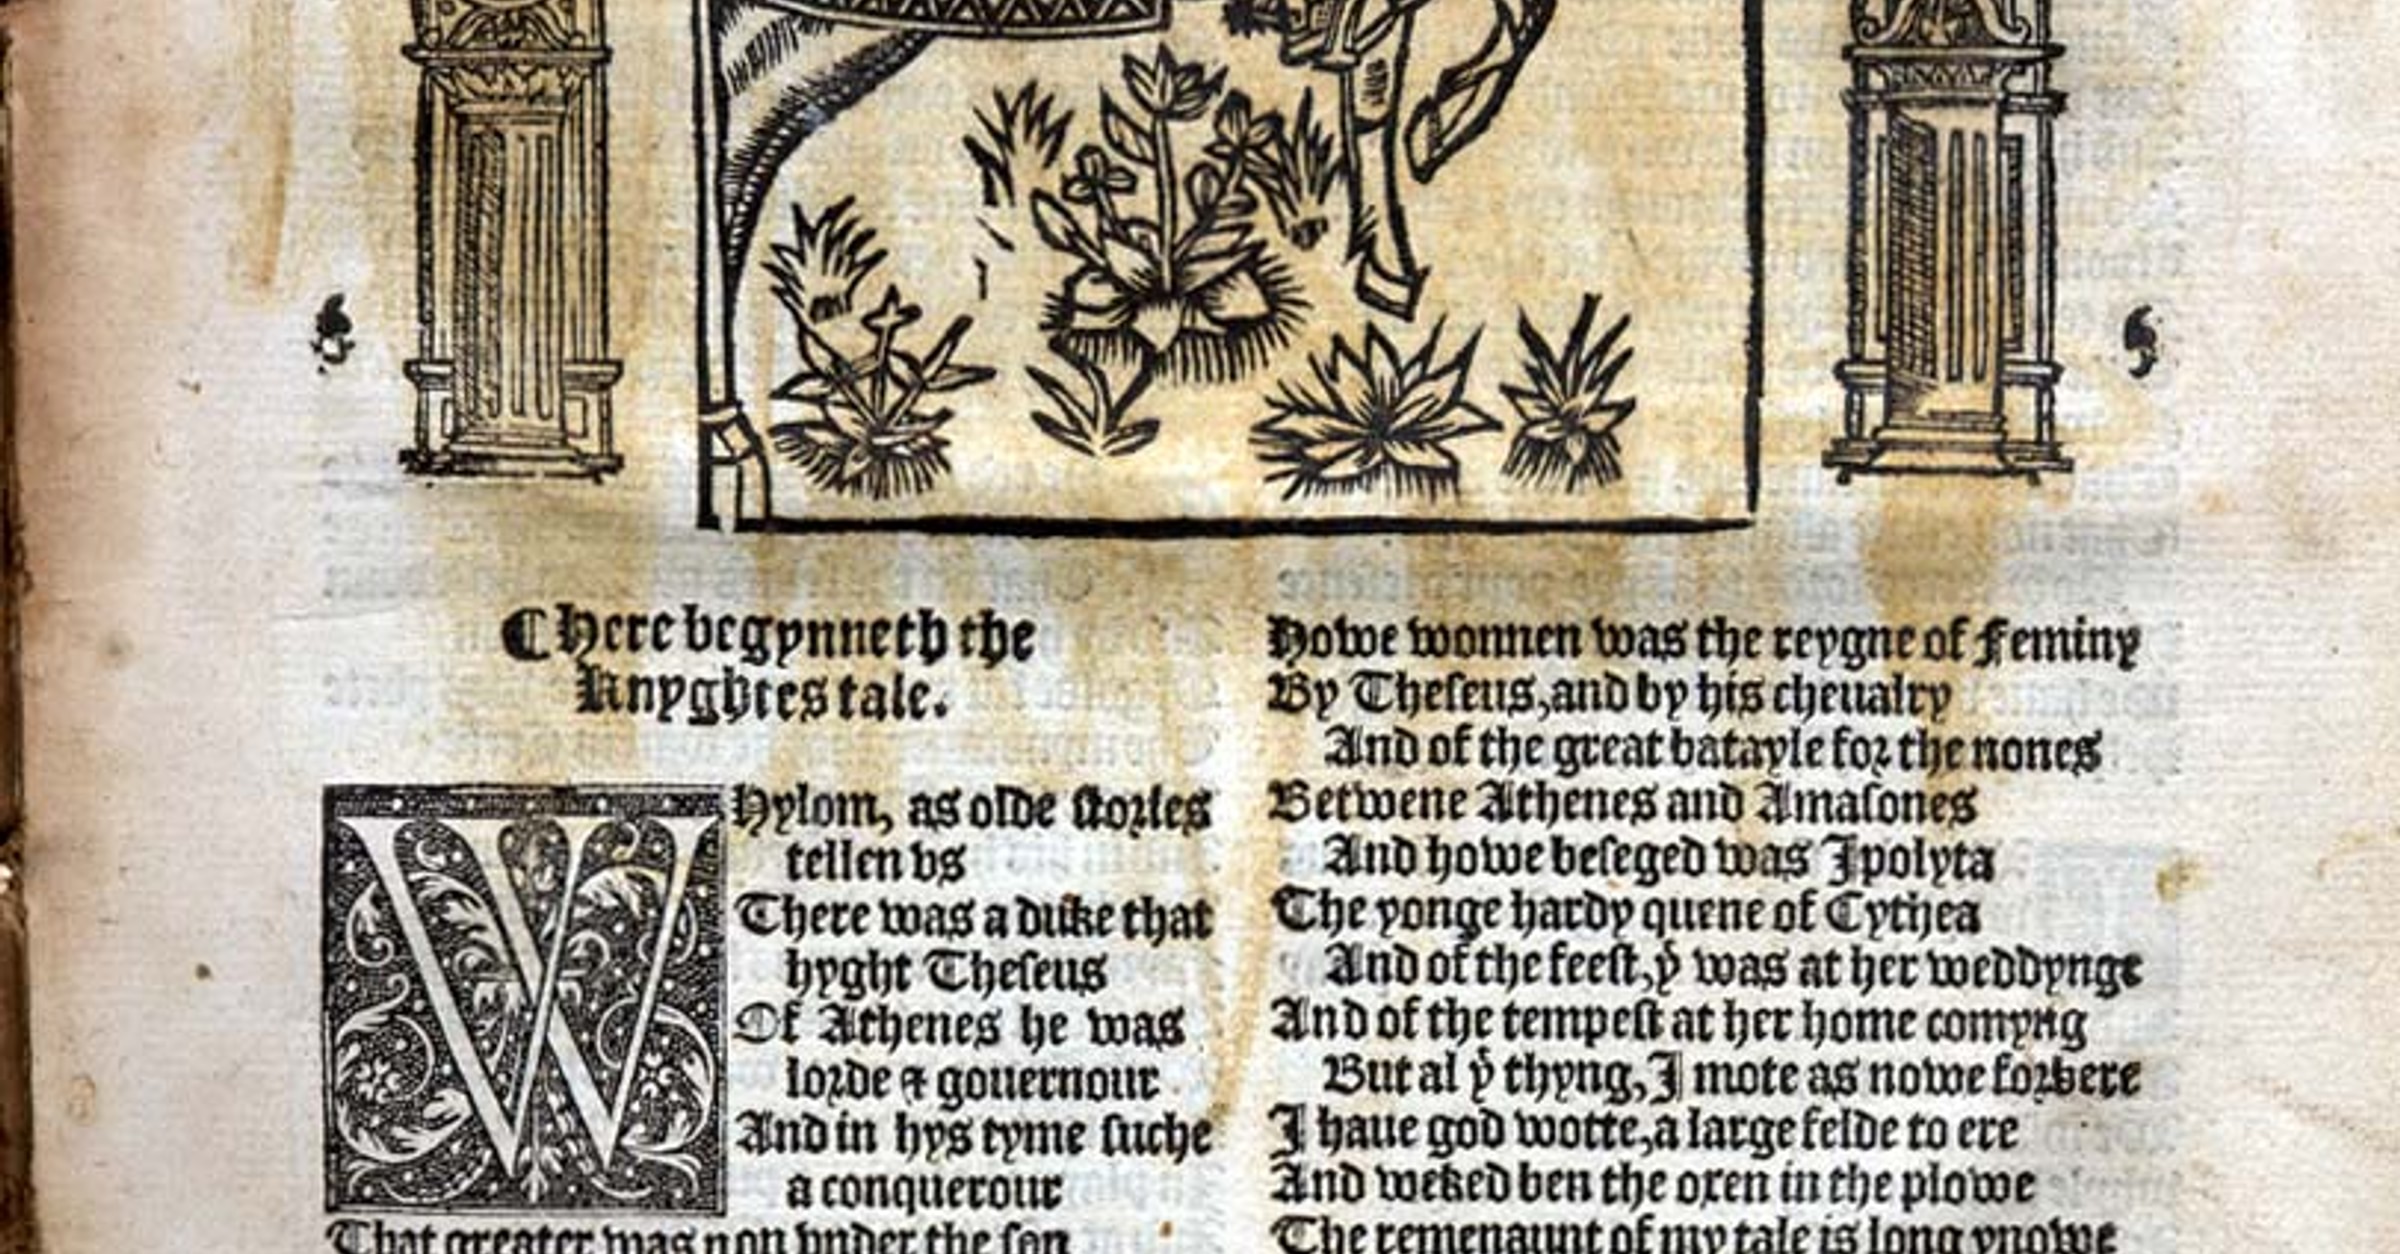 ¶ Here begynneth the
Knyghtes tale.
WHylom, as olde storles
tellen vs
There was a duke that
hyght Theseus
Of Athenes he was
lorde & gouernour
And in hys tyme suche
a conquerour
That greater was non vnder the son
Howe wonnen was the reygne of Feminy
By Theseus, and by his cheualry
And of the great batayle for the nones
Betwene Athenes and Amasones
And howe beseged was Ipolyta
The yonge hardy quene of Cythea
And of the feest, yͭ was at her weddynge
And of the tempest at her home comyng
But al yͭ thyng, I mote as nowe forbere
I haue god wotte, a large felde to ere
And weked ben the oxen in the plowe
The remenaunt of my tale is long ynowe